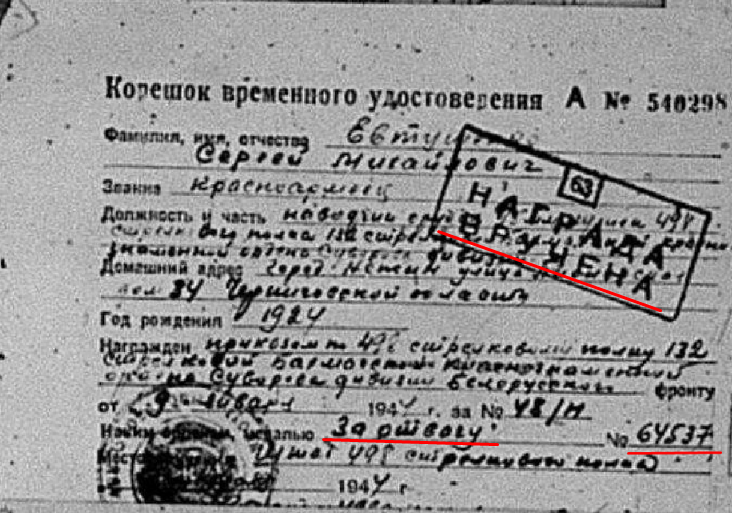 Корешок временного удостоверения А № 540298
Фамилия, имя, отчество
Сергей Михайлович
Звание Красноармеец
Должность и часть наводчик 498
полка 132
ордена Суворова дивизии
Домашний адрес город Нежин улица
дом 34 Черниговской области
Год рождения 1924
Награжден приказом 498 стрелковому полку 132
стрелковой Бахмачской Краснознаменной
ордена Суворова дивизии Белорусского фронту
от 29 января 1944 г. за № 48/н
медалью За отвагу № 64537
Штаб 498 стрелкового полка
1944 г
63
НАГРАДА
ВРУЧЕНА